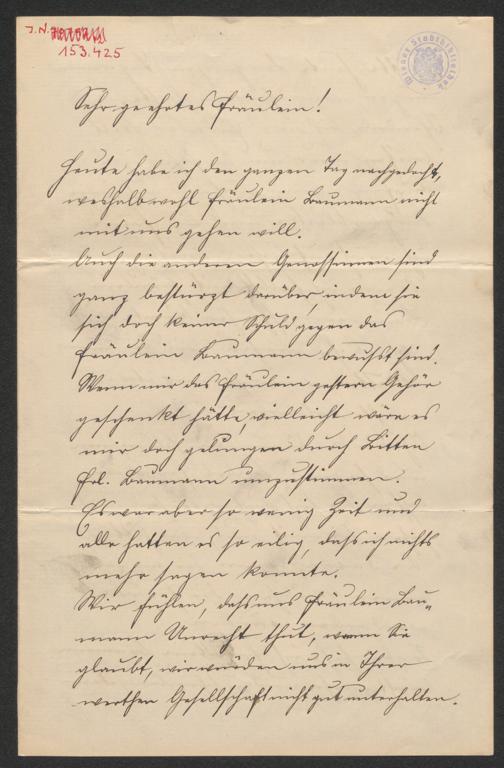 J.N.
153.425
Wiener Stadtbibliothek
Sehr geehrtes Fräulein!
Heute habe ich den ganzen Tag nachgedacht,
weshalb wohl Fräulein Baumann nicht
mit uns gehen will.
Auch die anderen Genossinnen sind
ganz bestürzt darüber, indem sie
sich doch keiner Schuld gegen das
Fräulein Baumann bewußt sind.
Wenn mir das Fräulein gestern Gehör
geschenkt hätte, vielleicht wäre es
mir doch gelungen durch Bitten
Frl. Baumann umzustimmen.
Es war aber so wenig Zeit und
alle hatten es so eilig, dass ich nichts
mehr sagen konnte.
Wir fühlen, dass uns Fräulein Bau-
mann Unrecht thut, wenn Sie
glaubt, wir würden uns in Ihrer
werthen Gesellschaft nicht gut unterhalten.